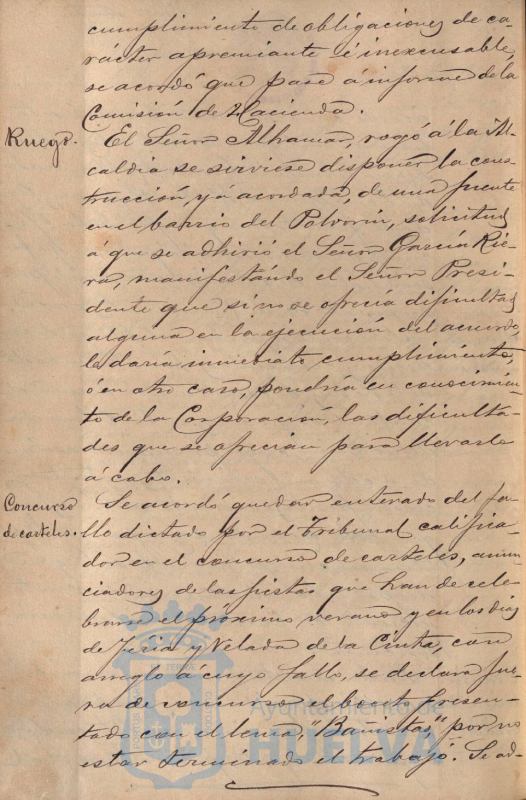 cumplimiento de obligaciones de ca-
rácter apremiante é inexcusable,
se acordó que pase á informe de la
Comisión de Hacienda.
Ruego.
El Señor Alhamar, rogó á la Al-
caldía se sirviese disponer la cons-
trucción, yá acordada, de una fuente
en el barrio del Polvorín, solicitud
á que se adhirió el Señor García Rie-
ra, manifestándo el Señor Presi-
dente que si no se ofrecia dificultad
alguna en la ejecución del acuerdo,
le daría inmediato cumplimiento,
ó en otro caso, pondría en conocimien-
to de la Corporación, las dificulta-
des que se ofrecian para llevarlo
á cabo.
Concurso
de carteles.
Se acordó quedar enterado del fa-
llo dictado por el Tribunal califica-
dor en el concurso de carteles, anun-
ciadores de las fiestas que han de cele-
brarse el próximo verano y en los dias
de Feria y Velada de la Cinta, con
arreglo á cuyo fallo, se declara fue-
ra de concurso el boceto presen-
tado con el lema, "Bañistas," por no
estar terminado el trabajo. Se ad-
Ayuntamiento de
HUELVA